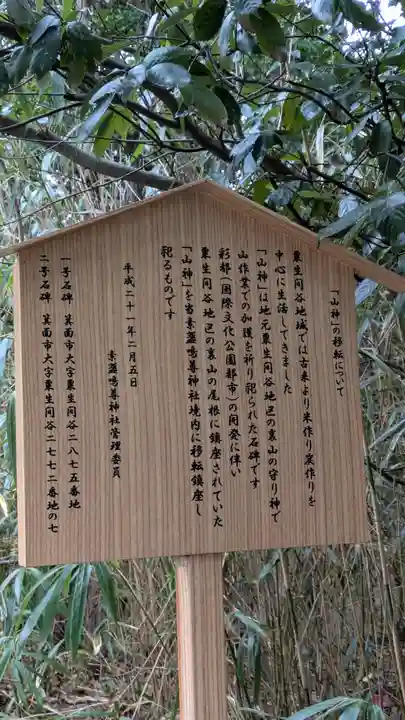 「山神」の移転について
粟生間谷地域では古来より米作り炭作りを
中心に生活してきました
「山神」は地元粟生間谷地区の裏山の守り神で
山作業での加護を祈り祀られた石碑です
彩都(国際文化公園都市)の開発に伴い
粟生間谷地区の裏山の尾根に鎮座されていた
「山神」を当素盞嗚尊神社境内に移転鎮座し
祀るものです
平成二十一年二月五日
素盞嗚尊神社管理委員
一号石碑 箕面市大字粟生間谷二八七五番地
二号石碑 箕面市大字粟生間谷二七七二番地の七